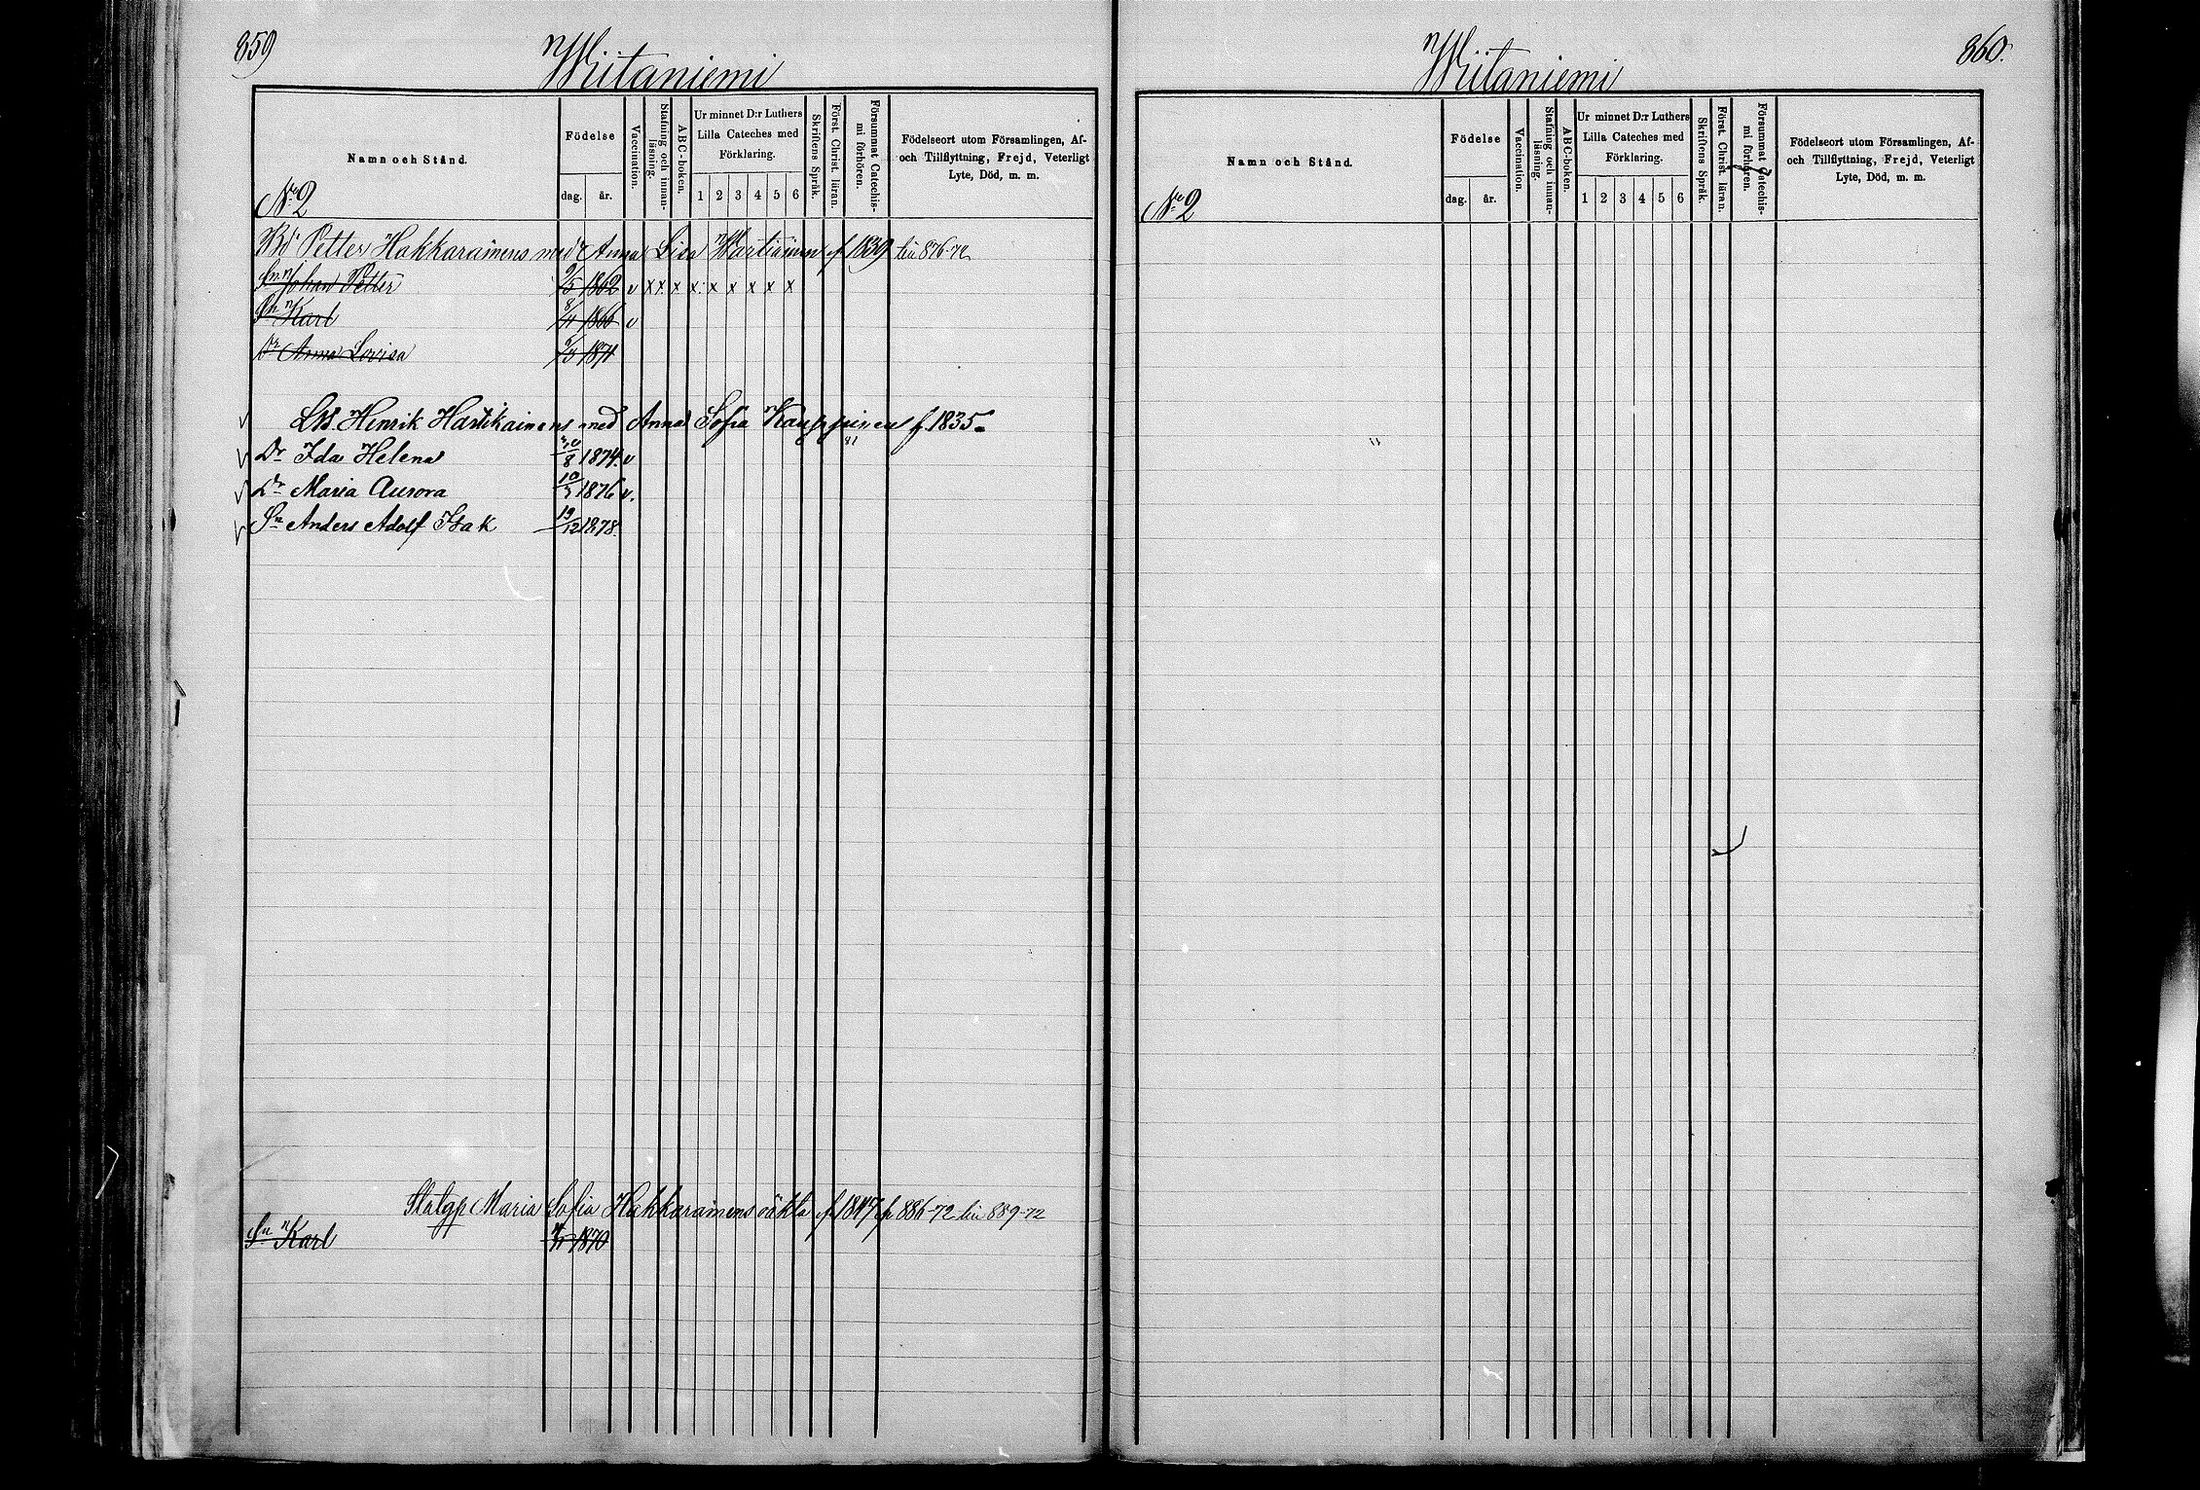 859
Wiitaniemi
Namn och Stånd.
Födelse
dag.
år.
Vaccination.
Stafning och innan-
läsning.
ABC-boken.
Ur minnet D:r Luthers
Lilla Cateches med
Förklaring.
1 2 3 4 5 6
Skriftens Språk.
Först. Christ. läran.
Försummat Catechis-
mi förhören.
Födelseort utom Församlingen, Af-
och Tillflyttning, Frejd, Veterligt
Lyte, Död, m. m.
No 2
Petter Hakkarainens med Anna Lisa f 1839 876-72
Sn Johan Petter 9/5 1862 v x x x x x x x x x
Sn Karl 8/11 1866 v
Dr Anna Lovisa 1871
Henrik Hartikainens med Anna Sofia Kauppinen f. 1835.
81
Dr Ida Helena 30/8 1874. v
Dr Maria Aurora 10/3 1876 v.
Sn Anders Adolf Isak 19/12 1878.
Maria Sofia Hakkarainens f 1847 886-72 889-72
Sn Karl 1870
860.
Wiitaniemi
Namn och Stånd.
Födelse
dag.
år.
Vaccination.
Stafning och innan-
läsning.
ABC-boken.
Ur minnet D:r Luthers
Lilla Cateches med
Förklaring.
1 2 3 4 5 6
Skriftens Språk.
Först. Christ. läran.
Försummat Catechis-
mi förhören.
Födelseort utom Församlingen, Af-
och Tillflyttning, Frejd, Veterligt
Lyte, Död, m. m.
No 2